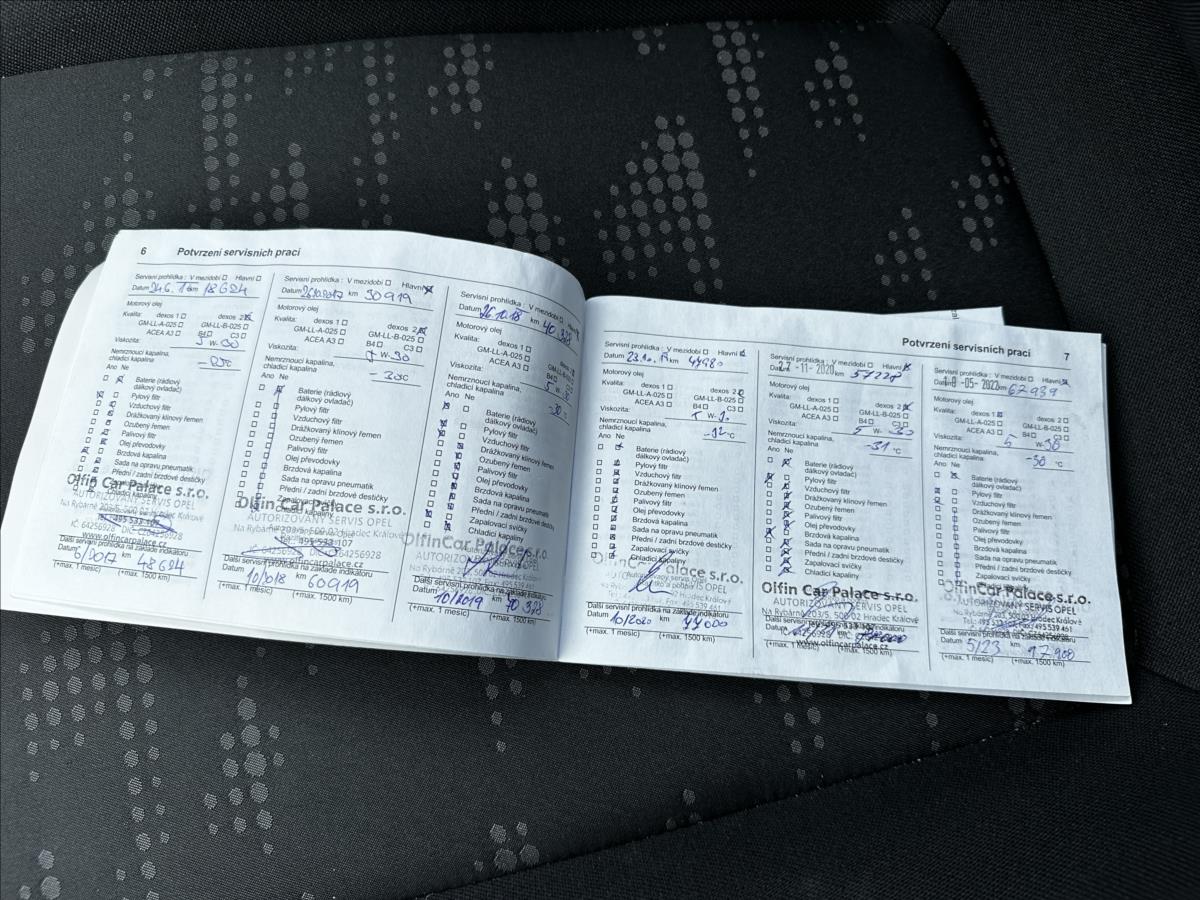 6 Potvrzení servisních prací
Servisní prohlídka : V mezidobí Hlavní
Datum km 18624
Motorový olej
Kvalita: dexos 1 dexos 2
GM-LL-A-025 GM-LL-B-025
ACEA A3 B4 C3
Viskozita: 5 W-30
Nemrznoucí kapalina,
chladicí kapalina
Ano Ne
Baterie (rádiový
dálkový ovladač)
Pylový filtr
Vzduchový filtr
Drážkovaný klínový řemen
Ozubený řemen
Palivový filtr
Olej převodovky
Brzdová kapalina
Sada na opravu pneumatik
Přední / zadní brzdové destičky
Olfin Car Palace s.r.o.
AUTORIZOVANÝ SERVIS OPEL
IČ: 64256928
www.olfincarpalace.cz
Další servisní prohlídka na základě indikátoru
Datum 6/2017 48624
(+max. 1 měsíc) (+max. 1500 km)
Servisní prohlídka : V mezidobí Hlavní
Datum 26.10.2017 km 30919
Motorový olej
Kvalita: dexos 1 dexos 2
GM-LL-A-025 GM-LL-B-025
ACEA A3 B4 C3
Viskozita: 5 W-30
Nemrznoucí kapalina,
chladicí kapalina -30°C
Ano Ne
Baterie (rádiový
dálkový ovladač)
Pylový filtr
Vzduchový filtr
Drážkovaný klínový řemen
Ozubený řemen
Palivový filtr
Olej převodovky
Brzdová kapalina
Sada na opravu pneumatik
Přední / zadní brzdové destičky
Olfin Car Palace s.r.o.
AUTORIZOVANÝ SERVIS OPEL
Další servisní prohlídka na základě indikátoru
Datum 10/2018 km 60919
(+max. 1 měsíc) (+max. 1500 km)
Servisní prohlídka : V mezidobí Hlavní
Datum 26.10.18 km 40 378
Motorový olej
Kvalita: dexos 1 dexos 2
GM-LL-A-025 GM-LL-B-025
ACEA A3 B4 C3
Viskozita: 5 W-30
Nemrznoucí kapalina,
chladicí kapalina
Ano Ne
Baterie (rádiový
dálkový ovladač)
Pylový filtr
Vzduchový filtr
Drážkovaný klínový řemen
Ozubený řemen
Palivový filtr
Olej převodovky
Brzdová kapalina
Sada na opravu pneumatik
Přední / zadní brzdové destičky
Zapalovací svíčky
Chladicí kapaliny
Olfin Car Palace s.r.o.
Další servisní prohlídka na základě indikátoru
Datum 10/2019 km 70 378
(+max. 1 měsíc) (+max. 1500 km)
Potvrzení servisních prací 7
Servisní prohlídka : V mezidobí Hlavní
Datum 23.10. km
Motorový olej
Kvalita: dexos 1 dexos 2
GM-LL-A-025 GM-LL-B-025
ACEA A3 B4 C3
Viskozita:
Nemrznoucí kapalina,
chladicí kapalina °C
Ano Ne
Baterie (rádiový
dálkový ovladač)
Pylový filtr
Vzduchový filtr
Drážkovaný klínový řemen
Ozubený řemen
Palivový filtr
Olej převodovky
Brzdová kapalina
Sada na opravu pneumatik
Přední / zadní brzdové destičky
Zapalovací svíčky
Chladicí kapaliny
Olfin Car Palace s.r.o.
Další servisní prohlídka na základě indikátoru
Datum 10/2020 km 77000
(+max. 1 měsíc) (+max. 1500 km)
Servisní prohlídka : V mezidobí Hlavní
Datum -11-2020 km 57228
Motorový olej
Kvalita: dexos 1 dexos 2
GM-LL-A-025 GM-LL-B-025
ACEA A3 B4 C3
Viskozita: 5 W-30
Nemrznoucí kapalina,
chladicí kapalina -31 °C
Ano Ne
Baterie (rádiový
dálkový ovladač)
Pylový filtr
Vzduchový filtr
Drážkovaný klínový řemen
Ozubený řemen
Palivový filtr
Olej převodovky
Brzdová kapalina
Sada na opravu pneumatik
Přední / zadní brzdové destičky
Zapalovací svíčky
Chladicí kapaliny
Olfin Car Palace s.r.o.
AUTORIZOVANÝ SERVIS OPEL
Další servisní prohlídka na základě indikátoru
www.olfincarpalace.cz
(+max. 1 měsíc) (+max. 1500 km)
Servisní prohlídka : V mezidobí Hlavní
Datum -05-2022 km 67939
Motorový olej
Kvalita: dexos 1 dexos 2
GM-LL-A-025 GM-LL-B-025
ACEA A3 B4 C3
Viskozita: 5 W-30
Nemrznoucí kapalina,
chladicí kapalina -30 °C
Ano Ne
Baterie (rádiový
dálkový ovladač)
Pylový filtr
Vzduchový filtr
Drážkovaný klínový řemen
Ozubený řemen
Palivový filtr
Olej převodovky
Brzdová kapalina
Sada na opravu pneumatik
Přední / zadní brzdové destičky
Zapalovací svíčky
Olfin Car Palace s.r.o.
AUTORIZOVANÝ SERVIS OPEL
Další servisní prohlídka na základě indikátoru
Datum 5/23 km 97.900
(+max. 1 měsíc) (+max. 1500 km)